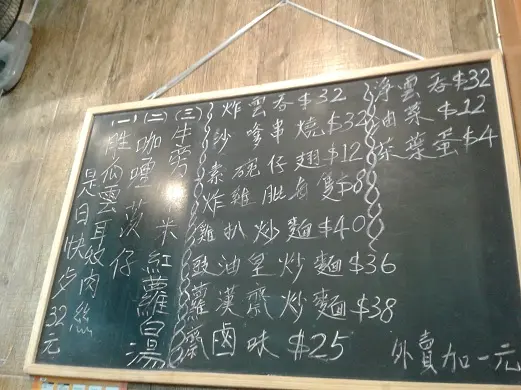 炸雲吞$32
沙嗲串燒$32
素碗仔翅$12
炸雞脾每隻$8
雞扒炒麵$40
豉油皇炒麵$36
羅漢齋炒麵$38
齋鹵味$25
淨雲吞$32
油菜$12
茶葉蛋$4
(一)
勝瓜雲耳炆肉絲
(二)
咖喱
仔
(三)
牛
米
紅蘿蔔湯
是日快歺32元
外賣加一元